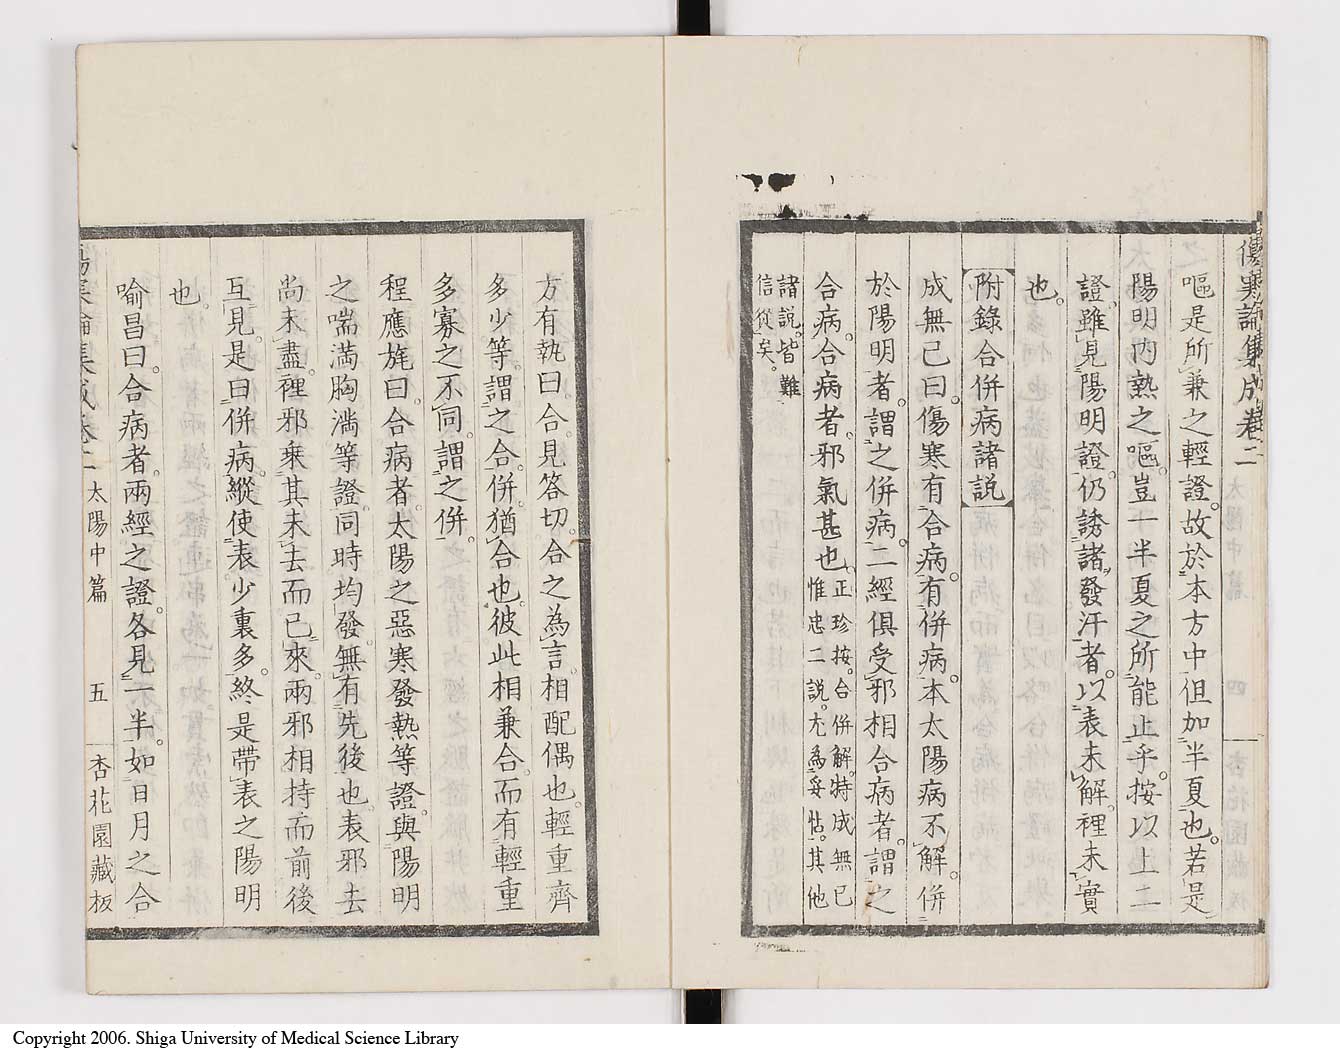 傷寒論集成卷二
嘔是所兼之輕證。故於本方中但加半夏也。若是
陽明內熱之嘔。豈一半夏之所能止乎。按以上二
證。雖見陽明證。仍誘諸發汗者。以表未解。裡未實
也。
附錄合併病諸説
成無已曰。傷寒有合病。有併病。本太陽病不解。併
於陽明者。謂之併病。二經俱受邪相合病者。謂之
合病。合病者。邪氣甚也。正珍按。合併解。特成無已
惟忠二説。尤為妥怗。其他
諸説。皆難
信從矣。
方有執曰。合見答切。合之為言。相配偶也。輕重齊
多少等。謂之合。併。猶合也。彼此相兼合。而有輕重
多寡之不同。謂之併。
程應旄曰。合病者。太陽之惡寒發熱等證。與陽明
之喘滿胸滿等證。同時均發。無有先後也。表邪去
尚未盡。裡邪乘其未去而已來。兩邪相持而前後
互見。是曰併病。縱使表少裏多。終是帶表之陽明
也。
喻昌曰。合病者。兩經之證。各見一半。如日月之合
傷寒論集成卷二 太陽中篇 五 杏花園藏板
Copyright 2006. Shiga University of Medical Science Library